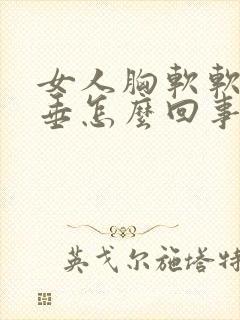 女人胸軟軟
垂怎麼回事
英戈尔施塔特